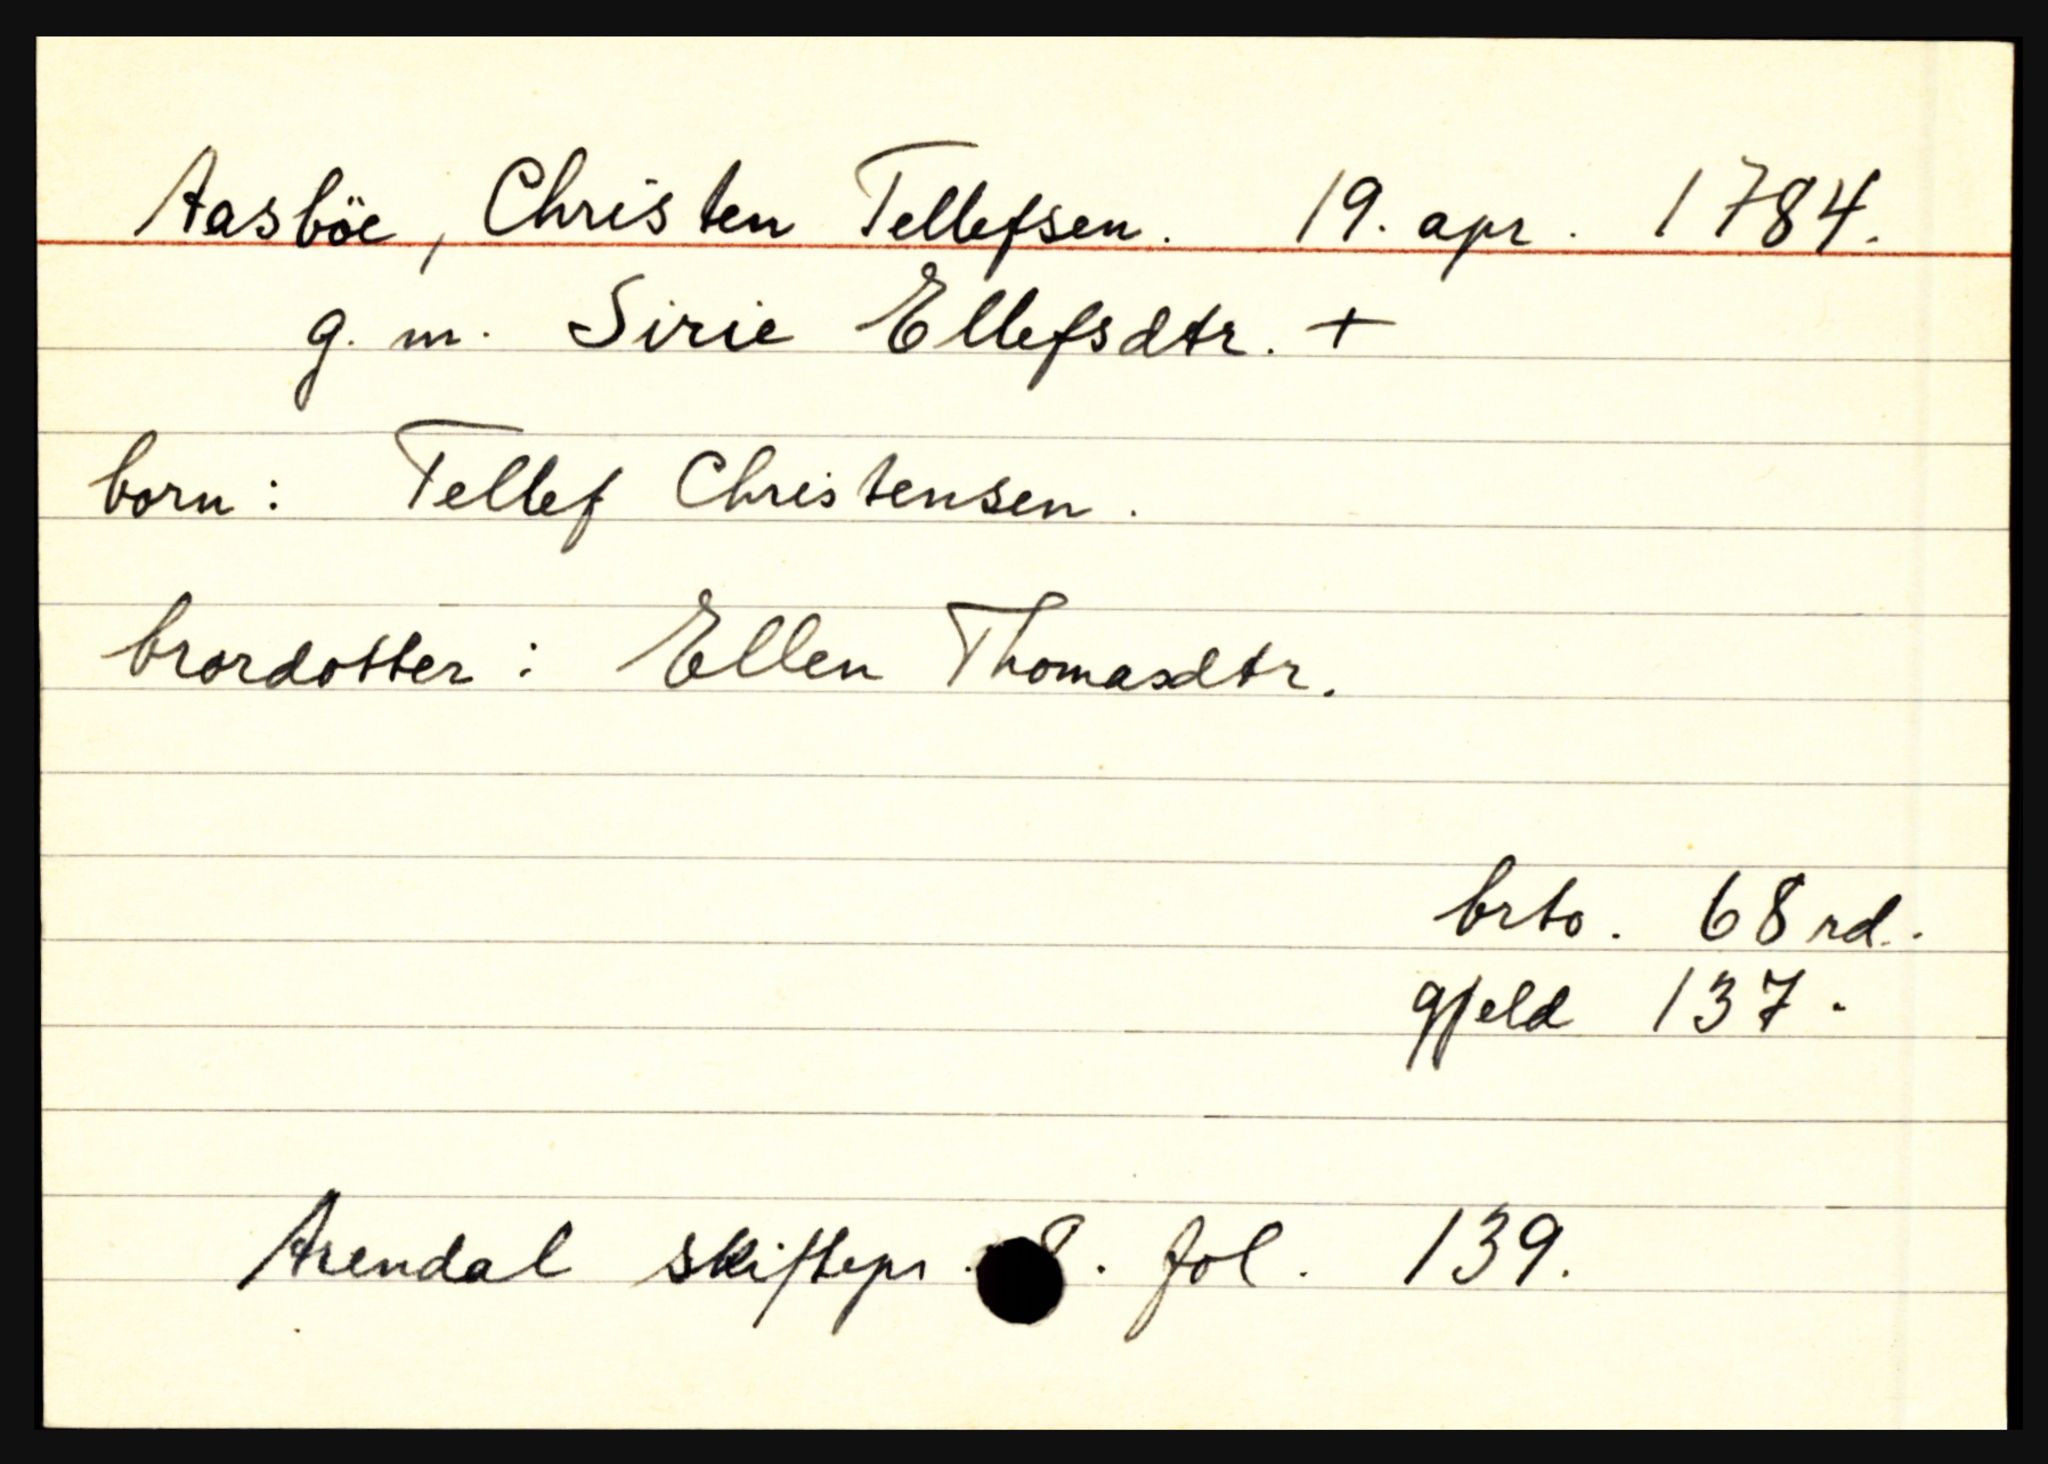 Aasböe, Christen Tellefsen. 19. apr. 1784.
g. m. Sirie Ellefsdtr. +
born: Tellef Christensen.
brordotter: Ellen Thomasdtr.
brto. 68 rd.
gjeld 137.
Arendal skiftepr. 8. fol. 139.